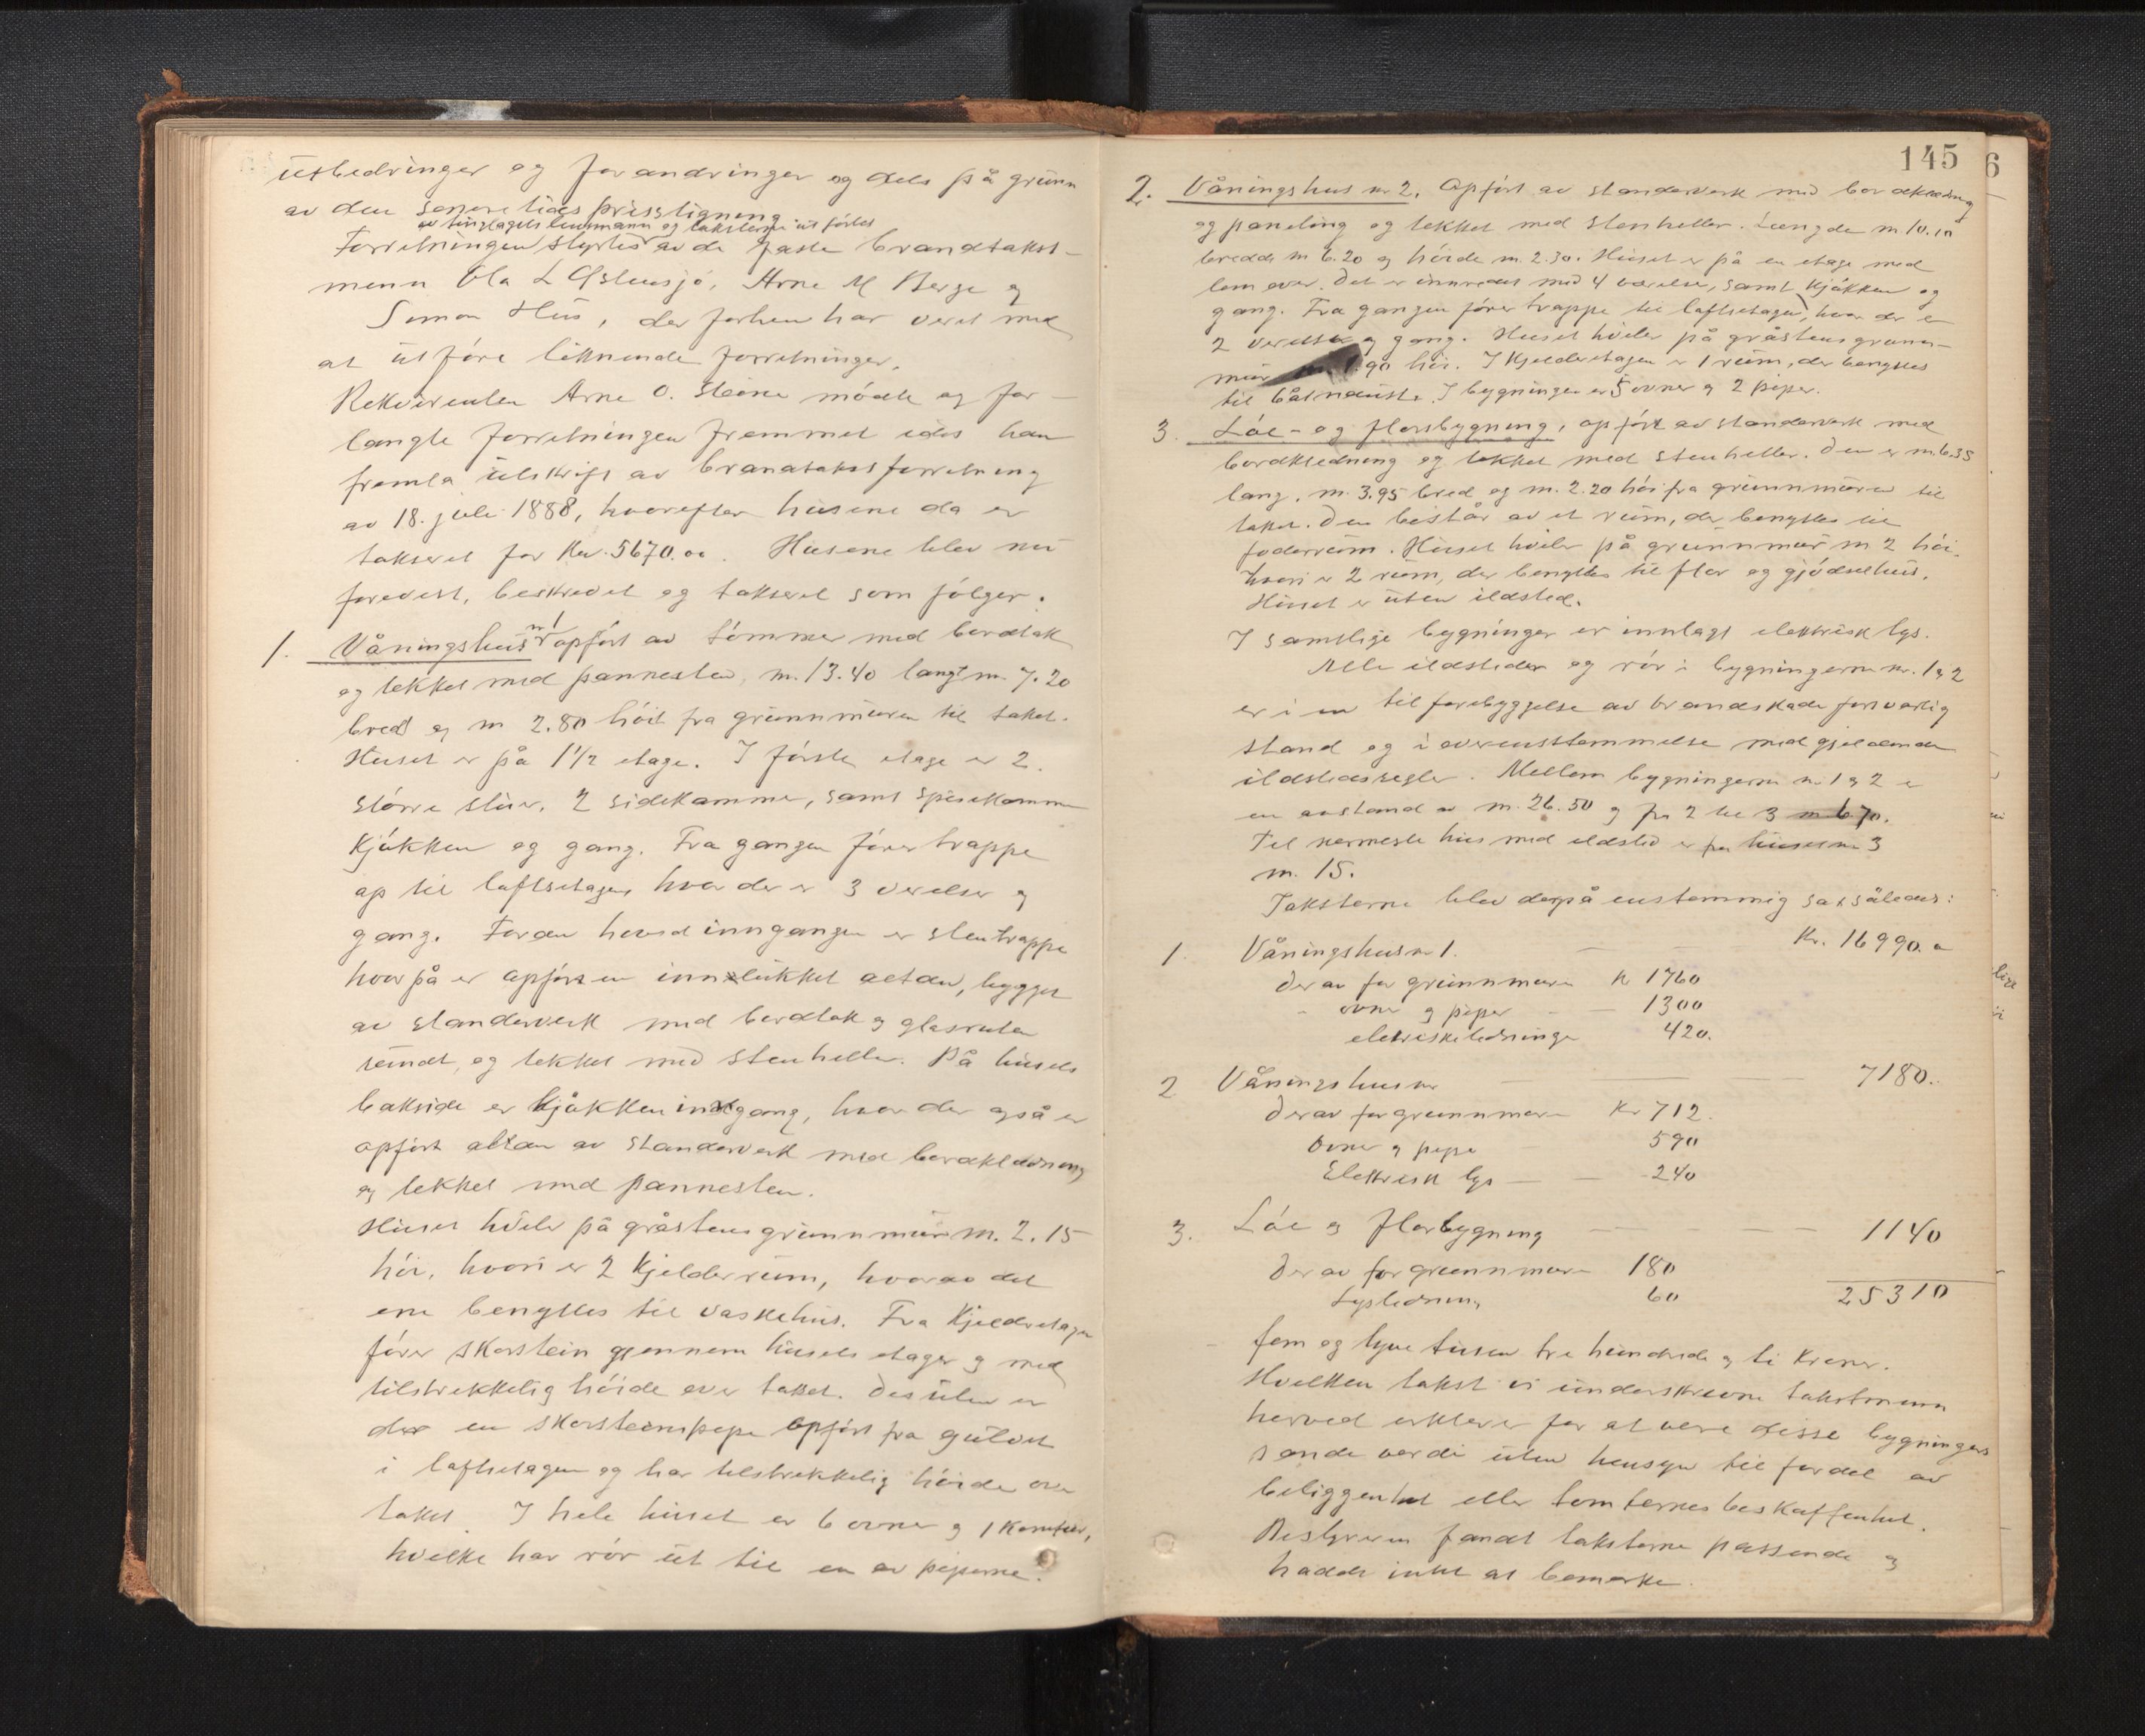 utbedringer og forandringer og dels på grunn
av den senere tids prisstigning
av tinglagets lensmann og taksterne utførtes
Forretningen styrtes av de faste brandtakst-
menn Ola L Øslensjø, Arne M Berge og
Simon Hus, der forhen har veret med
at utføre liknende forretninger.
Rekvirenten Arne O. Steine møtte og for-
langte forretningen fremmet idet han
fremla utskrift av brandtakstforretning
av 18. juli 1888, hvorefter husene da er
taksert for Kr. 5670.00. Husene blev nu
forevist, beskrevet og taksert som følger:
1. Våningshus nr 1 opført av tømmer med bordtak
og tekket med pannesten, m. 13.40 langt m. 7.20
bred og m 2.80 høit fra grunnmuren til taket.
Huset er på 1 1/2 etage. I første etage er 2
større stuer, 2 sidekammer, samt spisekammer
Kjøkken og gang. Fra gangen fører trappe
op til loftsetagen hvor der er 3 verelser og
gang. Foran hovedinngangen er stentrappe
hvorpå er opført en innelukket altan, bygget
av standerverk med bordtak og glasruter
rundt, og tekket med stenheller. På husets
bakside er kjøkkeninngang, hvor der også er
opført altan av standerverk med bordkledning
og tekket med pannesten.
Huset hviler på gråstensgrunnmur m. 2.15
høi, hvori er 2 kjelderrum, hvorav det
ene benyttes til vaskehus. Fra Kjelderetagen
fører skorstein gjennem husets etager og med
tilstrekkelig høide over taket. Desuten er
der en skorsteinspipe opført fra gulvet
i loftsetagen og har tilstrekkelig høide over
taket. I hele huset er 6 ovner og 1 komfur,
hvilke har rør ut til en av piperne.
145
6
2. Våningshus nr 2. Opført av standerverk med bordkledning
og paneling og tekket med stenheller. Længden m. 10.10
bredde m 6.20 og høide m. 2.30. Huset er på en etage med
lem over. Det er innredet med 4 værelser, samt kjøkken og
gang. Fra gangen fører trappe til loftsetagen, hvor der er
2 verelser og gang. Huset hviler på gråstensgrunn-
mur 1.90 høi. I Kjelderetagen er 1 rum, der benyttes
til båtnaust. I bygningen er 5 ovner og 2 piper.
3. Løe- og florsbygning, opført av standerverk med
bordkledning og tekket med stenheller. Den er m. 6.35
lang, m. 3.95 bred og m. 2.20 høi fra grunnmuren til
taket. Den består av et rum, der benyttes til
foderrum. Huset hviler på grunnmur m 2 høi,
hvori er 2 rum, der benyttes til flor og gjødselhus.
Huset er uten ildsted.
I samtlige bygninger er innlagt elektrisk lys.
Alle ildsteder og rør i bygningerne nr. 1 og 2
er i en til forebyggelse av brandskade forsvarlig
stand og i overensstemmelse med gjeldende
ildstedsregler. Mellem bygningerne nr. 1 og 2 er
en avstand av m. 26.50 og fra 2 til 3 m 6.70.
Til nermeste hus med ildsted er fra huset nr 3
m. 15.
Taksterne blev derpå enstemmig sat således:
1. Våningshus nr 1. Kr. 16990.00
derav for grunnmuren Kr 1760
- ovner og piper - 1300
elektriske ledninger 420.
2 Våningshus nr 7180.
derav for grunnmuren Kr 712.
Ovner og piper 590
Elektrisk lys 240
3. Løe og florbygning 1140
derav for grunnmuren 180
Lysledning 60 25310
fem og tyve tusen tre hundrede og ti Kroner.
Hvilken takst vi underskrevne takstmenn
herved erklerer for at vere disse bygningers
sande verdi uten hensyn til fordel av
beliggenhet eller tomternes beskaffenhet.
Bestyreren fandt taksterne passende og
hadde intet at bemerke.